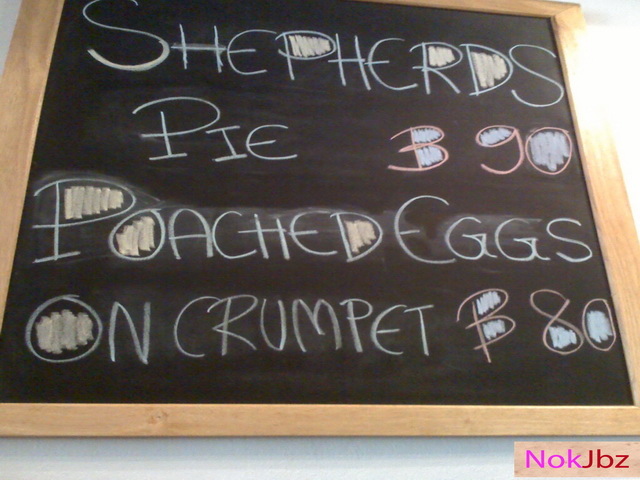 SHEPHERDS
PIE ฿ 90
POACHED EGGS
ON CRUMPET ฿ 80
NokJbz